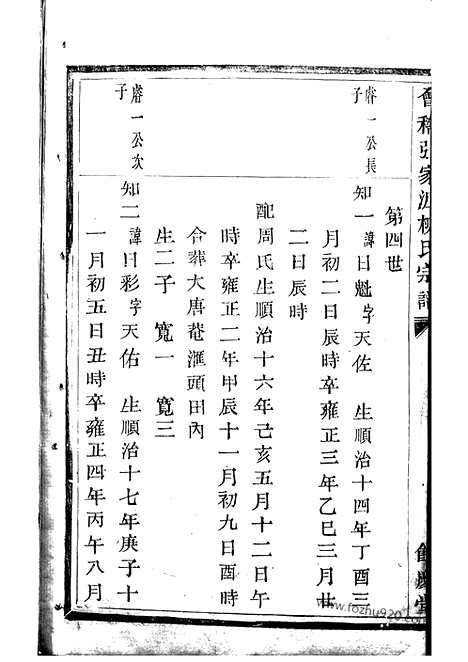 會稽張家漊柳氏宗譜
第四世
睿一公長子
知一 諱日魁字天佐 生順治十四年丁酉三
月初二日辰時卒雍正三年乙巳三月廿
二日辰時
配周氏生順治十六年己亥五月十二日午
時卒雍正二年甲辰十一月初九日酉時
合葬大唐菴滙頭田內
生二子 寬一 寬三
睿一公次子
知二 諱日彩字天佑 生順治十七年庚子十
一月初五日丑時卒雍正四年丙午八月
www.fozhu920.com